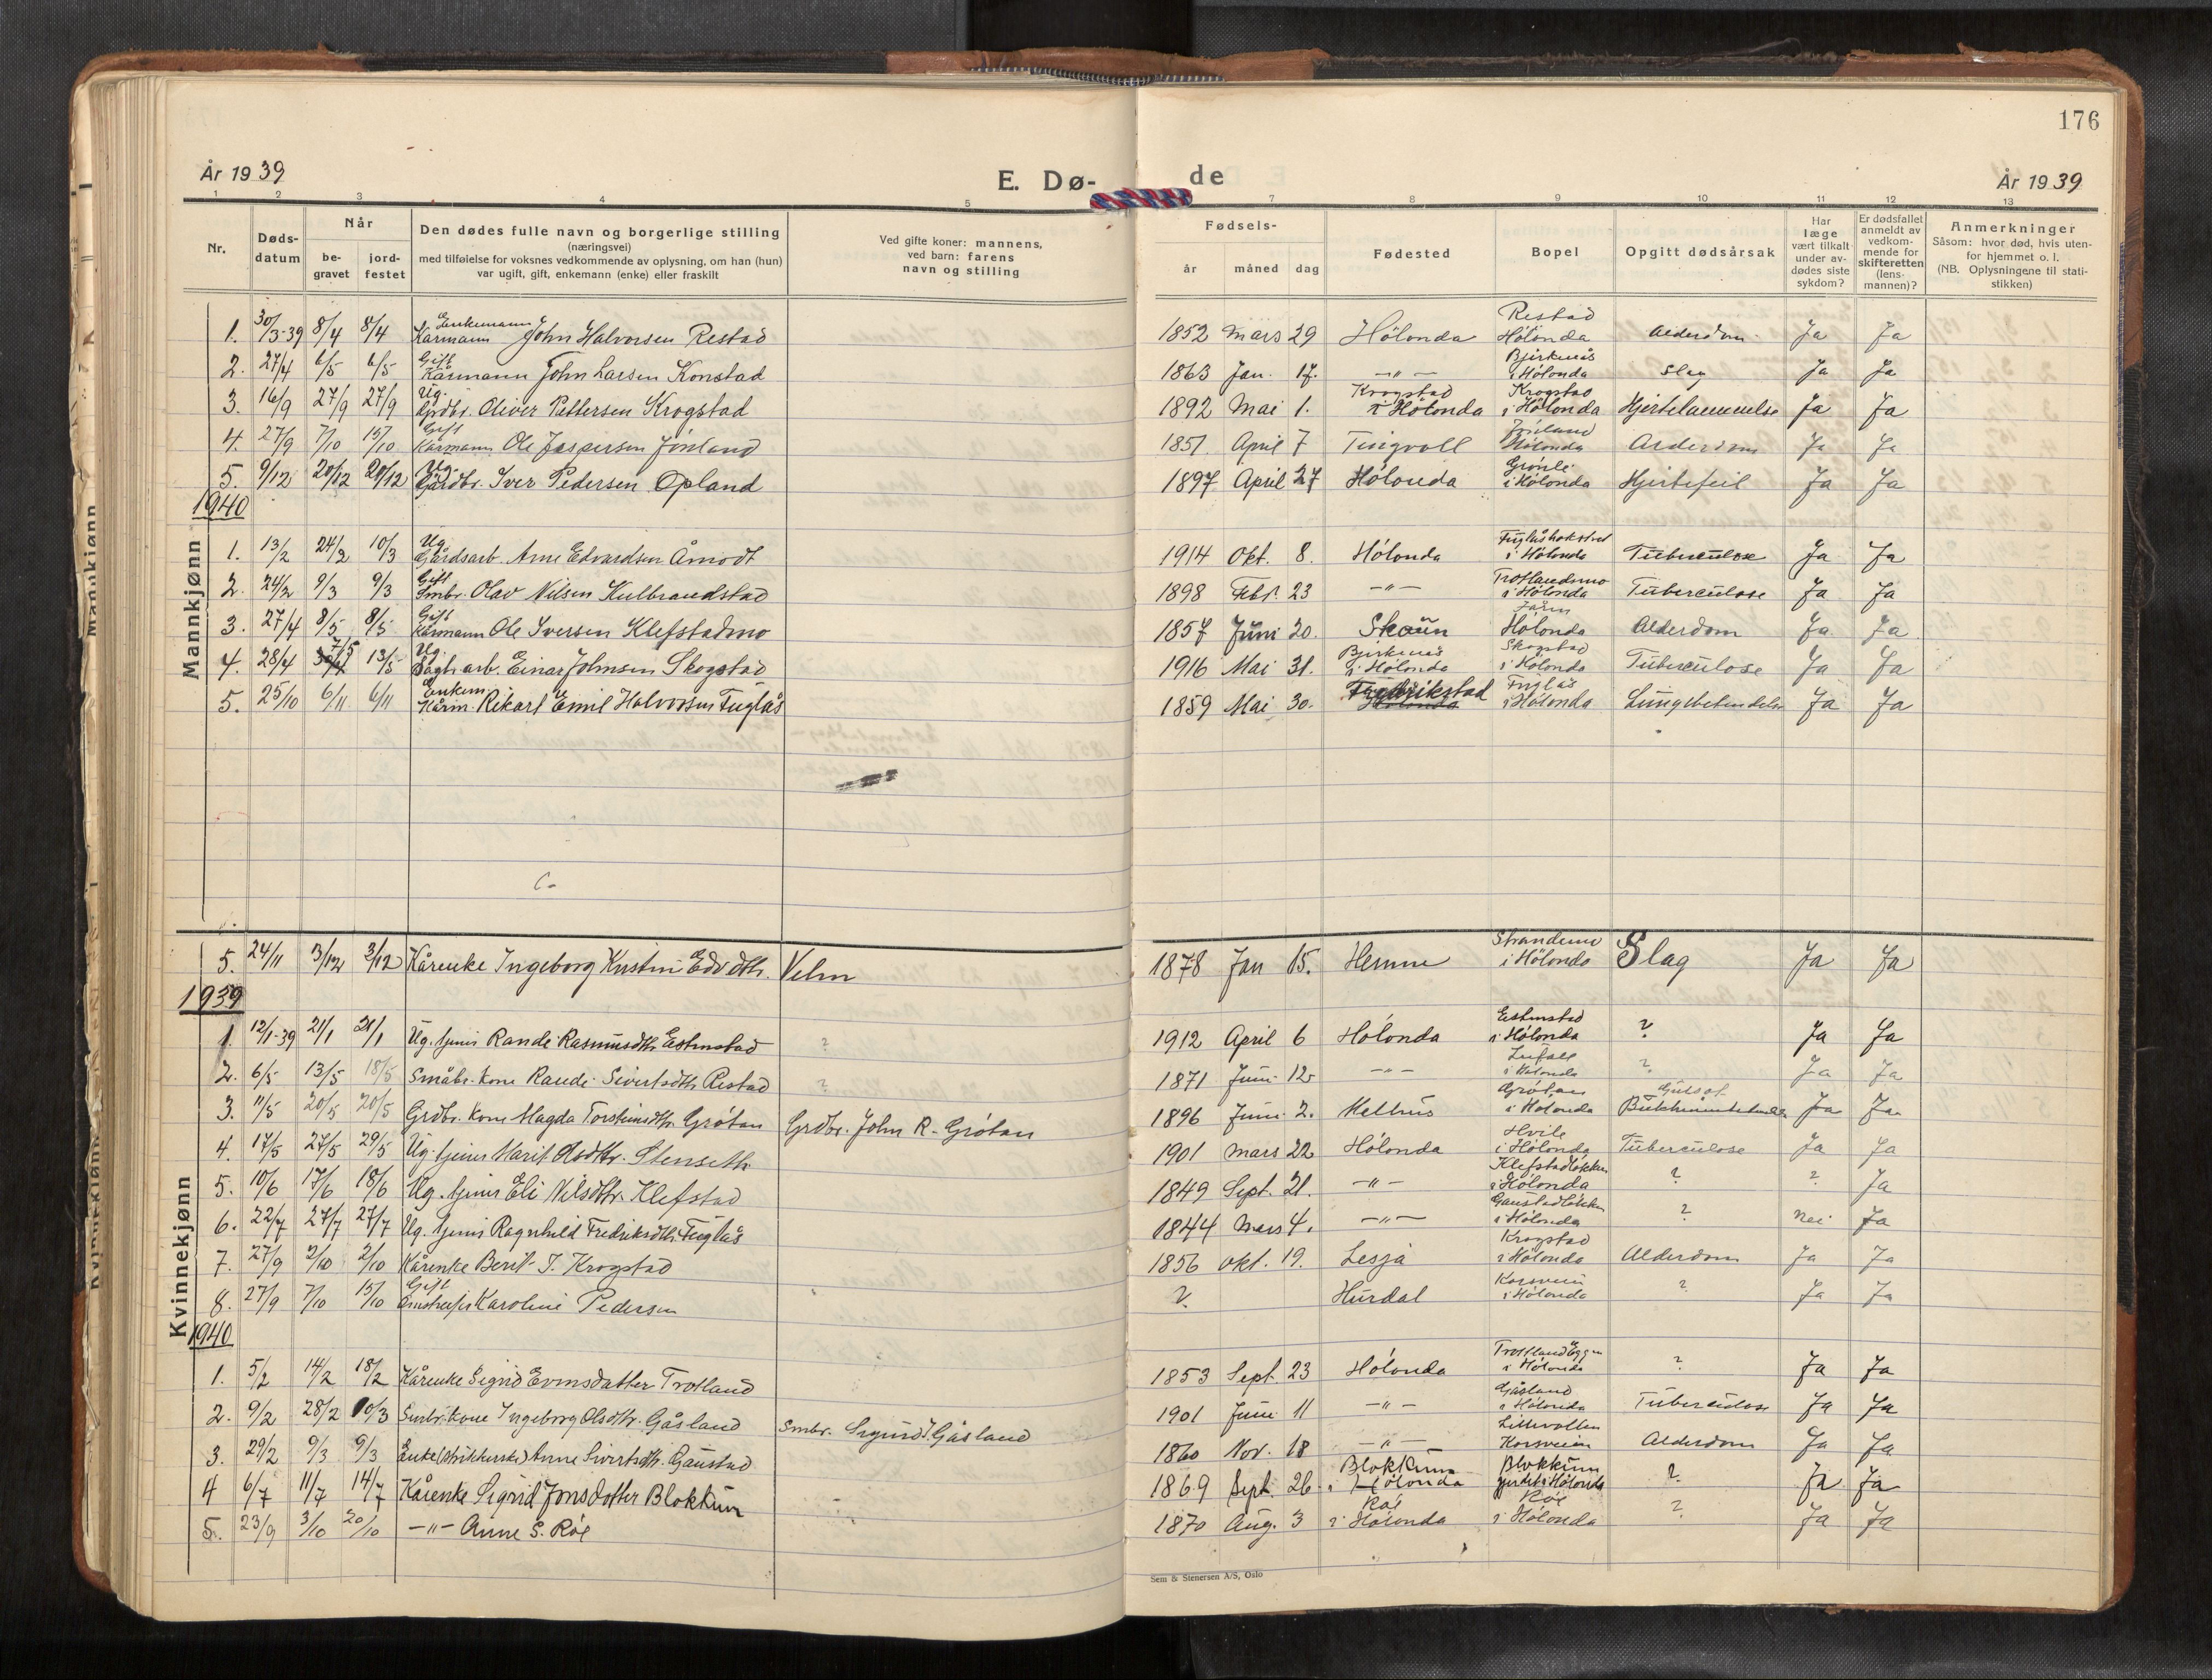 176
År 1939
E. Dø-
de
År 1939
1 2 3 4 5 7 8 9 10 11 12 13
Nr.
Døds-
datum
Når
be-
gravet
jord-
festet
Den dødes fulle navn og borgerlige stilling
(næringsvei)
med tilføielse for voksnes vedkommende av oplysning, om han (hun)
var ugift, gift, enkemann (enke) eller fraskilt
Ved gifte koner: mannens,
ved barn: farens
navn og stilling
Fødsels-
år måned dag
Fødested
Bopel
Opgitt dødsårsak
Har
læge
vært tilkalt
under av-
dødes siste
sykdom?
Er dødsfallet
anmeldt av
vedkom-
mende for
skifteretten
(lens-
mannen)?
Anmerkninger
Såsom: hvor død, hvis uten-
for hjemmet o. l.
(NB. Oplysningene til stati-
stikken)
Mannkjønn
1. 30/3-39 8/4 8/4 Enkemann Kårmann John Halvorsen Restad 1852 Mars 29 Hölonda Restad Hölonda Alderdom Ja Ja
2. 27/4 6/5 6/5 Gift Kårmann John Larsen Konstad 1863 Jan. 17. -"- Bjerknås i Hölonda Slag Ja Ja
3. 16/9 27/9 27/9 Ug. Grdbr. Oliver Pettersen Krogstad 1892 Mai 1. Krogstad i Hölonda Krogstad i Hölonda Hjertelammelse Ja Ja
4. 27/9 7/10 15/10 Gift Kårmann Ole Jaspersen Jönland 1851 April 7 Tingvoll Jönland Hölonda Alderdom Ja Ja
5. 9/12 20/12 20/12 Ug. Gårdbr. Iver Pedersen Opland 1897 April 27 Hölonda Grönli i Hölonda Hjertefeil Ja Ja
1940
1. 13/2 24/2 10/3 Ug. Gårdsarb. Arne Edvardsen Åmodt 1914 Okt. 8. Hölonda i Hölonda Tuberculose Ja Ja
2. 24/2 9/3 9/3 Gift Smbr. Olav Nilsen Kulbrandstad 1898 Febr. 23 -"- Trotlandsmo i Hölonda Tuberculose Ja Ja
3. 27/4 8/5 8/5 Gift Kårmann Ole Iversen Klefstadmo 1857 Juni 20. Skaun Hölonda Alderdom Ja Ja
4. 28/4 7/5 13/5 Ug. Sagb.arb. Einar Johnsen Skogstad 1916 Mai 31. Bjerknås i Hölonda Skogstad i Hölonda Tuberculose Ja Ja
5. 25/10 6/11 6/11 Enkem. Kårm. Rikart Emil Halvorsen Fuglås 1859 Mai 30. Fredrikstad Hölonda Fuglås i Hölonda Lungebetendelse Ja Ja
Kvinnekjønn
5. 24/11 3/12 3/12 Kårenke Ingeborg Kristine Edv.dtr. Velm 1878 Jan 15. Hemne Strandemo i Hölonda Slag Ja Ja
1939
1. 12/1-39 21/1 21/1 Ug. tjenis Rande Rasmusdtr. Estenstad ? 1912 April 6 Hölonda Estenstad i Hölonda ? Ja Ja
2. 6/5 13/5 18/5 Småbr. kone Rande Sivertsdtr. Restad ? 1871 Juni 12. -"- i Hölonda ? Ja Ja
3. 11/5 20/5 20/5 Grdbr. kone Magda Torsteinsdtr. Grötan Grdbr. John R. Grötan 1896 Juni 2. Melhus Grötan i Hölonda Ja Ja
4. 17/5 27/5 29/5 Ug. tjenis Marit Olsdtr. Stenseth 1901 Mars 22 Hölonda Hvile i Hölonda Tuberculose Ja Ja
5. 10/6 17/6 18/6 Ug. tjenis Eli Nilsdtr. Klefstad 1849 Sept. 21. -"- Klefstadløkken i Hölonda ? ? Ja
6. 22/7 27/7 27/7 Ug. tjenis Ragnhild Fredriksdtr. Fuglås 1844 Mars 4. -"- Gaustadløkken i Hölonda ? Nei Ja
7. 27/9 2/10 2/10 Kårenke Berit J. Krogstad 1856 Okt. 19. Lesja Krogstad i Hölonda Alderdom Ja Ja
8. 27/9 7/10 15/10 Gift Karoline Pedersen ? Hurdal Korsveien i Hölonda ? Ja Ja
1940
1. 5/2 14/2 18/2 Kårenke Sigrid Evensdatter Trotland 1853 Sept. 23 Hölonda Trotlandeggen i Hölonda ? Ja Ja
2. 9/2 28/2 10/3 Smbr. kone Ingeborg Olsdtr. Gåsland Smbr. Sigurd J. Gåsland 1901 Juni 11 -"- Gåsland i Hölonda Tuberculose Ja Ja
3. 29/2 9/3 9/3 Enke Anne Sivertsdtr. Gaustad 1860 Nov. 18 -"- Litlevollen Korsveien Alderdom Ja Ja
4 6/7 11/7 14/7 Kårenke Sigrid Jonsdotter Blokkum 1869 Sept. 26. Blokkum i Hölonda Blokkum i Hölonda ? Ja Ja
5. 23/9 3/10 20/10 -"- Anne S. Röe 1870 Aug. 3 Röe i Hölonda Röe i Hölonda ? Ja Ja
Sem & Stenersen A/S, Oslo